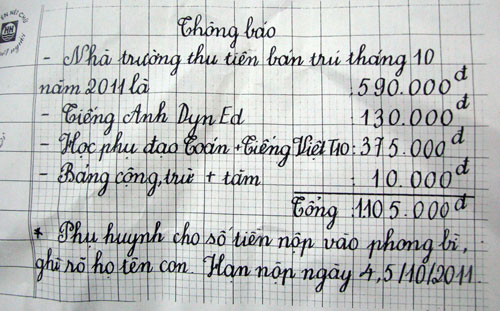 Thông báo
- Nhà trường thu tiền bán trú tháng 10
năm 2011 là : 590.000đ
- Tiếng Anh Dyn Ed : 130.000đ
- Học phụ đạo Toán + Tiếng Việt T10: 375.000đ
- Bảng cộng, trừ + tăm : 10.000đ
Tổng : 1105.000đ
* Phụ huynh cho số tiền nộp vào phong bì,
ghi rõ họ tên con. Hạn nộp ngày 4,5/10/2011.